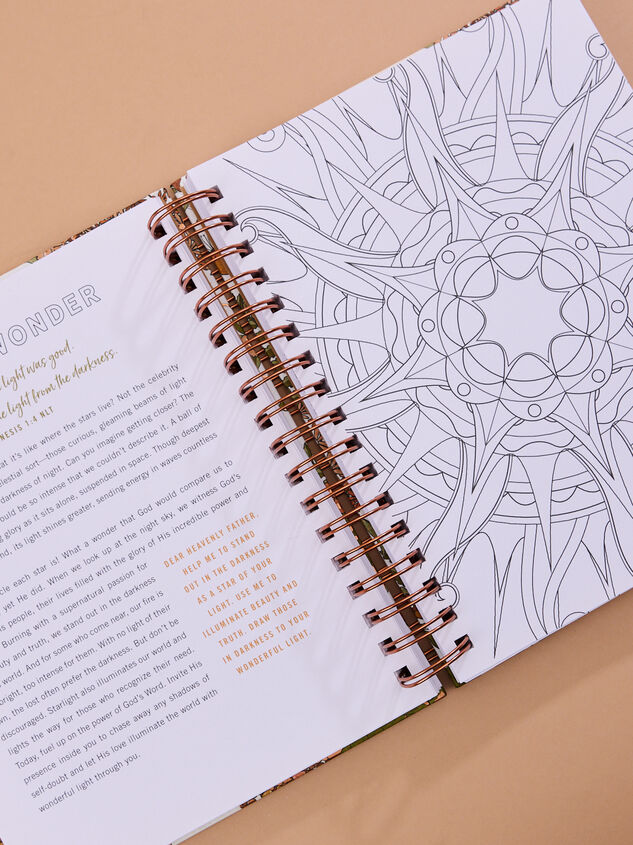 WONDER
light was good.
light from the darkness.
1:4 NLT
it's like where the stars live? Not the celebrity
sort—those curious, gleaming beams of light
darkness of night. Can you imagine getting closer? The
be so intense that we couldn't describe it. A ball of
glory as it sits alone, suspended in space. Though deepest
its light shines greater, sending energy in waves countless
each star is! What a wonder that God would compare us to
yet He did. When we look up at the night sky, we witness God's
people, their lives filled with the glory of His incredible power and
Burning with a supernatural passion for
and truth, we stand out in the darkness
world. And for some who come near, our fire is
bright, too intense for them. With no light of their
the lost often prefer the darkness. But don't be
discouraged. Starlight also illuminates our world and
lights the way for those who recognize their need.
Today, fuel up on the power of God's Word. Invite His
presence inside you to chase away any shadows of
self-doubt and let His love illuminate the world with
wonderful light through you.
DEAR HEAVENLY FATHER,
HELP ME TO STAND
OUT IN THE DARKNESS
AS A STAR OF YOUR
LIGHT. USE ME TO
ILLUMINATE BEAUTY AND
TRUTH. DRAW THOSE
IN DARKNESS TO YOUR
WONDERFUL LIGHT.